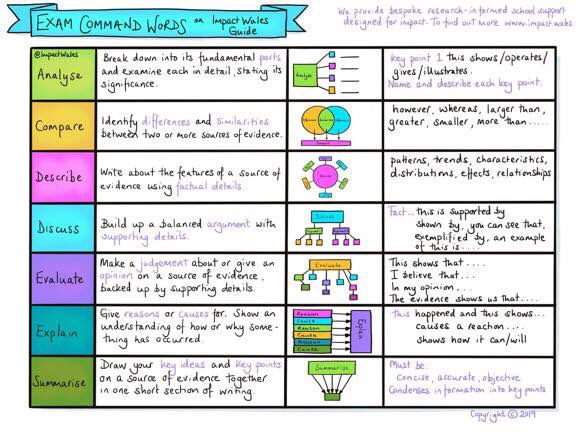 EXAM COMMAND WORDS an ImpactWales
Guide
We provide bespoke research-informed school support
designed for impact. To find out more www.impact.wales
@ImpactWales
Analyse
Break down into its fundamental parts
and examine each in detail, stating its
significance.
Analyse
key point 1 this shows/operates/
gives/illustrates.
Name and describe each key point.
Compare
Identify differences and Similarities
between two or more sources of evidence.
however, whereas, larger than,
greater, smaller, more than .....
Describe
Write about the features of a source of
evidence using factual details
patterns, trends, characteristics,
distributions, effects, relationships
Discuss
Build up a balanced argument with
supporting details.
Discuss
Fact.. this is supported by
shown by, you can see that,
exemplified by, an example
of this is....
Evaluate
Make a judgement about or give an
opinion on a source of evidence,
backed up by supporting details.
Evaluate
This shows that ....
I believe that...
In my opinion...
The evidence shows us that....
Explain
Give reasons or causes for. Show an
understanding of how or why some-
thing has occurred.
Reason
Cause
Reason
Cause
Reason
Cause
Explain
this happened and this shows...
causes a reaction....
shows how it can/will
Summarise
Draw your key ideas and key points
on a source of evidence together
in one short section of writing.
Summarise
Must be:
Concise, accurate, objective
Condenses information into key points
Copyright © 2019